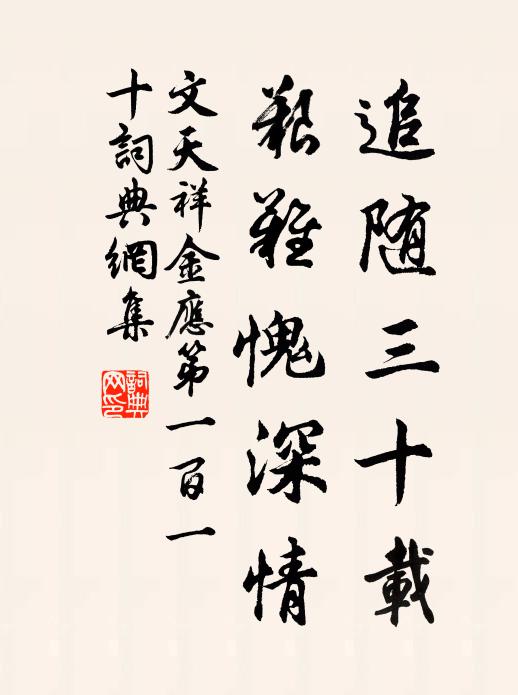 追随三十載
艱難愧深情
文天祥金應第一百一
十詞典網集
詞典
网印